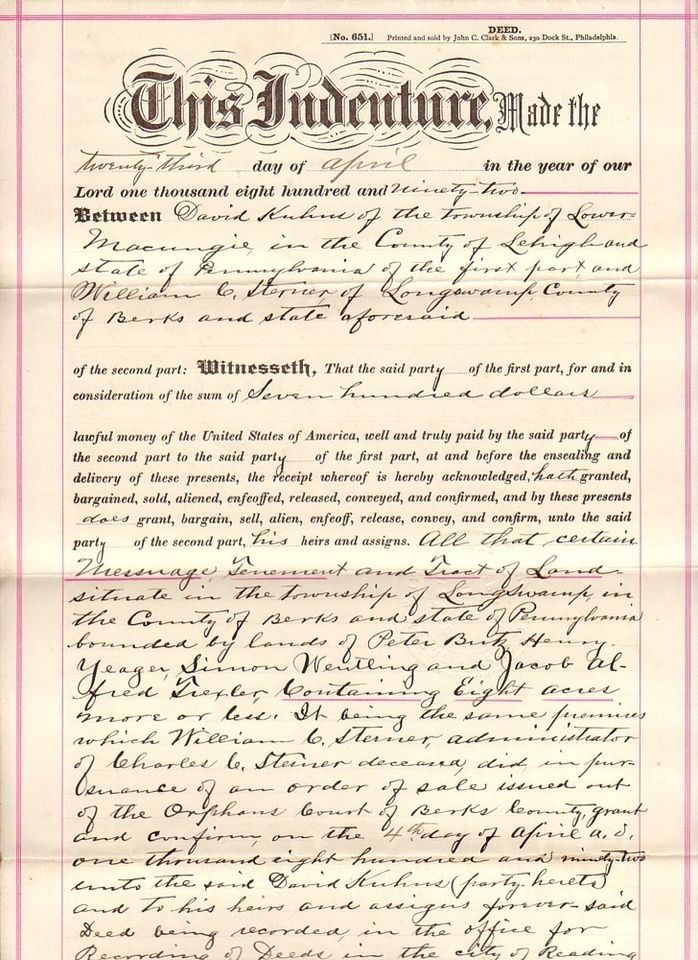 DEED.
[No. 651.] Printed and sold by John C. Clark & Sons, 230 Dock St., Philadelphia.
This Indenture, Made the
twenty-third day of april in the year of our
Lord one thousand eight hundred and ninety-two
Between David Kuhns of the township of Lower-
Macungie, in the County of Lehigh and
state of Pennsylvania of the first part, and
William C. Sterner, of Longswamp County
of Berks and state aforesaid
of the second part: Witnesseth, That the said party of the first part, for and in
consideration of the sum of Seven hundred dollars
lawful money of the United States of America, well and truly paid by the said party of
the second part to the said party of the first part, at and before the ensealing and
delivery of these presents, the receipt whereof is hereby acknowledged, hath granted,
bargained, sold, aliened, enfeoffed, released, conveyed, and confirmed, and by these presents
does grant, bargain, sell, alien, enfeoff, release, convey, and confirm, unto the said
party of the second part, his heirs and assigns. All that certain
Messuage, Tenement and Tract of Land
situate in the township of Longswamp, in
the County of Berks and state of Pennsylvania
bounded by lands of Peter Butz, Henry
Yeager, Simon Wentling and Jacob Al-
fred Trexler, Containing Eight acres
more or less. It being the same premises
which William C. Sterner, administrator
of Charles C. Steiner deceased, did in pur-
suance of an order of sale issued out
of the Orphans Court of Berks County, grant
and confirm, on the 4th day of April a.D.
one thousand eight hundred and ninety-two
unto the said David Kuhns (party hereto)
and to his heirs and assigns forever said
Deed being recorded, in the office for
Recording of Deeds in the city of Reading